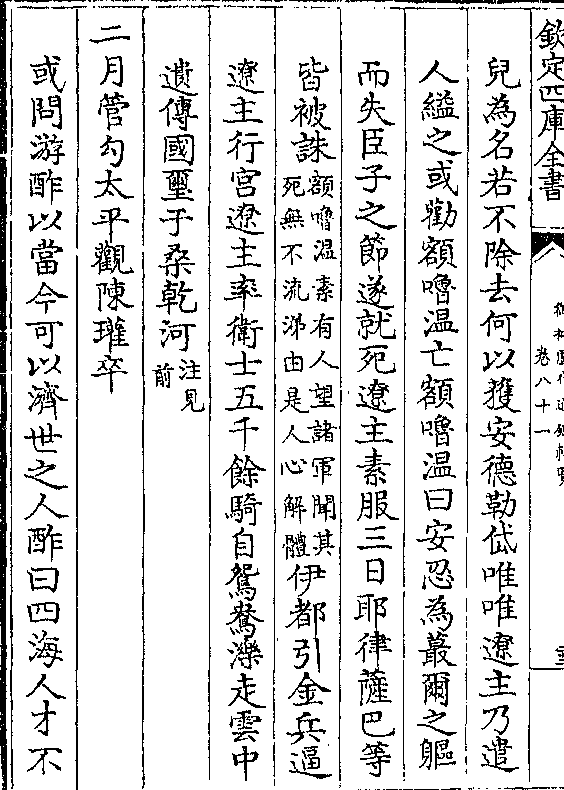 欽定四庫全書
卷八十一
兒為名若不除去何以獲安德勒岱唯唯遼主乃遣
人縊之或勸額嚕温亡額嚕温曰安忍為蕞爾之軀
而失臣子之節遂就死遼主素服三日耶律薩巴等
皆被誅額嚕温素有人望諸軍聞其死無不流涕由是人心解體伊都引金兵逼
遼主行宫遼主率衛士五千餘騎自鴛鴦濼走雲中
遺傳國璽于桑乾河注見前
二月管勾太平觀陳瓘卒
或問游酢以當今可以濟世之人酢曰四海人才不